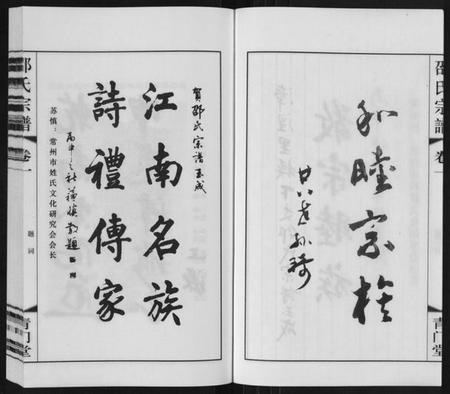 邵氏宗譜
卷一
和睦宗族
青门堂
賀邵氏宗谱玉成
江南名族
詩禮傳家
苏慎:常州市姓氏文化研究会会长
邵氏宗譜
卷一
题词
青门堂